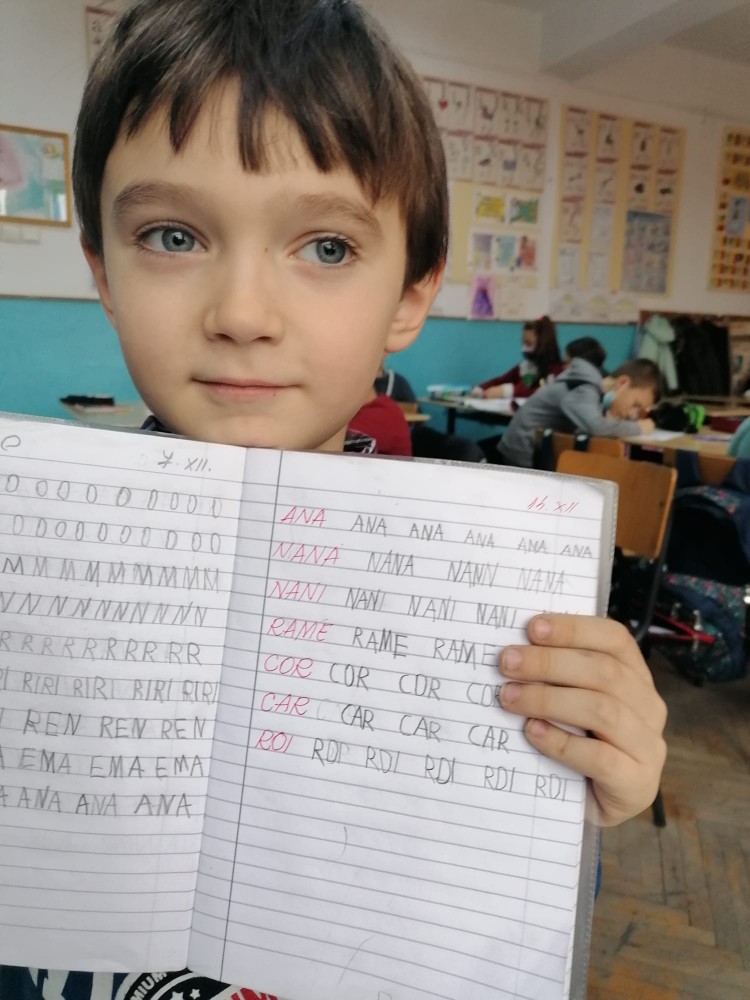 7. XII.
O O O O O O O O O
O O O O O O O O O O
M M M M M M M M M
N N N N N N N N N N
R R R R R R R R R R
RIRI RIRI RIRI RIRI
REN REN REN
EMA EMA EMA
ANA ANA ANA
14. XII
ANA ANA ANA ANA ANA ANA
NANA NANA NANN NANA
NANI NANI NANI NANI
RAME RAME RAME
COR COR COR COR
CAR CAR CAR CAR
ROI RDI RDI RDI RDI RDI